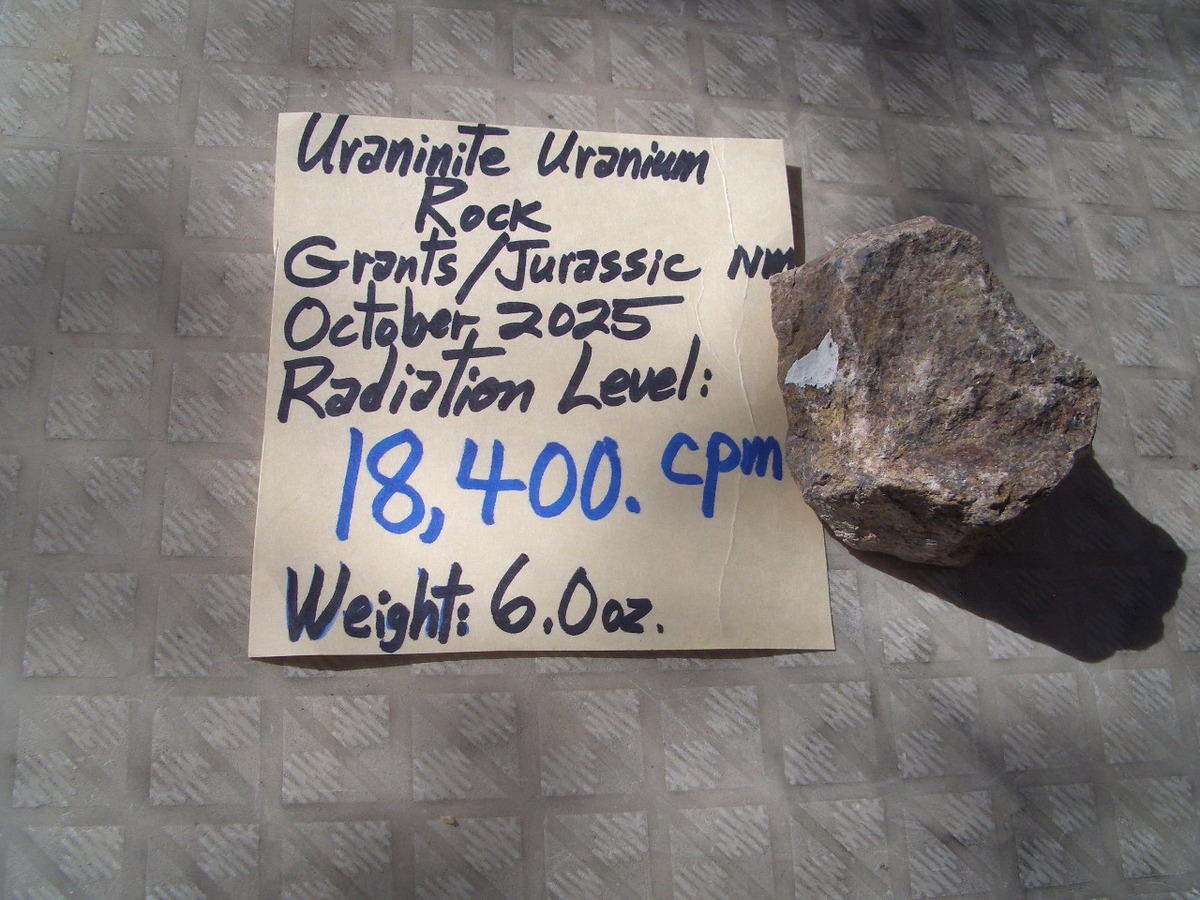 Uraninite Uranium
Rock
Grants/Jurassic NM
October 2025
Radiation Level:
18,400. cpm
Weight: 6.0 oz.